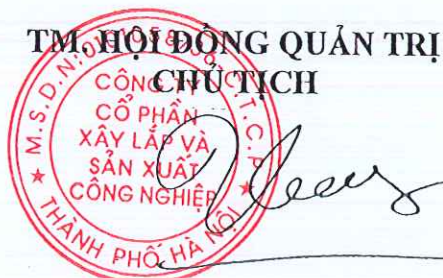 TM. HỘI ĐỒNG QUẢN TRỊ
CHỦ TỊCH
CÔNG TY
CỔ PHẦN
XÂY LẮP VÀ
SẢN XUẤT
CÔNG NGHIỆP
THÀNH PHỐ HÀ NỘI